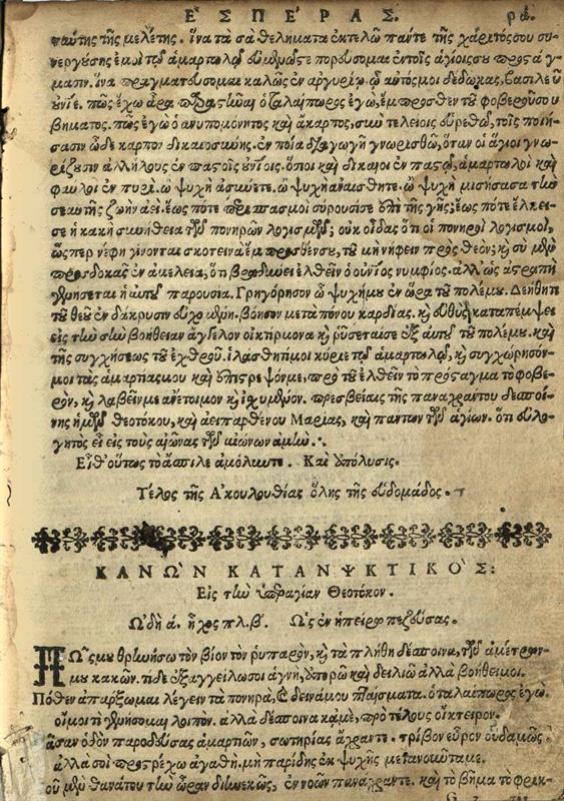 ΕΣΠΕΡΑΣ. ρα.
ταύτης τῆς μελέτης. ἵνα τὰ σὰ θελήματα ἐκτελῶ παύτε τῆς χάριτός σου συ-
νεργούσης ἐμοὶ τῷ ἁμαρτωλῷ
μαπν. ἵνα πραγματεύσομαι καλῶς ἐν ἀργυρίῳ, ᾧ αὐτός μοι δέδωκας, βασιλεῦ
υἱὲ. πῶς ἔχω ἄρα ὁ ταλαίπωρος ἐγὼ, ἔμπροσθεν τοῦ φοβεροῦ σου
βήματος. πῶς ἐγὼ ὁ ἀνυπομόνητος καὶ ἄκαρπος, σὺν τελείοις εὑρεθῶ, τοῖς ποιή-
σασιν ὧδε καρπὸν δικαιοσύνης. ἐν ποίᾳ διαγωγῇ γνωρισθῶ, ὅταν οἱ ἅγιοι γνω-
ρίζουσιν ἀλλήλους ὅποι καὶ δίκαιοι ἁμαρτωλοὶ καὶ
φαῦλοι ἐν πυρί. ὦ ψυχὴ ἀσύνετε. ὦ ψυχὴ ἀναίσθητε. ὦ ψυχὴ μισήσασα τὴν
σεαυτῆς ζωὴν ἀεί. ἕως πότε περισπασμοὶ σύρουσί σε ἐπὶ τῆς γῆς; ἕως πότε ἕλκει-
σε ἡ κακὴ συνήθεια τῶν πονηρῶν λογισμῶν; οὐκ οἶδας ὅτι οἱ πονηροὶ λογισμοὶ,
ὥσπερ νέφη γίνονται σκοτεινὰ ἔμπροσθέν σου, τοῦ μὴ νήφειν πρὸς θεόν; καὶ σὺ μὲν
προσδοκᾷς ἐν ἀμελείᾳ, ὅτι βραδύνει ἐλθεῖν ὁ νυμφίος. ἀλλ' ὡς ἀστραπὴ
γενήσεται ἡ αὐτοῦ παρουσία. Γρηγόρησον ὦ ψυχή μου ἐν ὥρᾳ τοῦ πολέμου. Δεήθητι
τοῦ θεοῦ ἐν δάκρυσιν εὐχομένη. βόησον μετὰ πόνου καρδίας. καὶ εὐθὺς καταπέμψει
εἰς τὴν σὴν βοήθειαν ἄγγελον οἰκτίρμονα καὶ ῥύσεταί σε ἐξ αὐτοῦ τοῦ πολέμου. καὶ
τῆς συγχήσεως τοῦ ἐχθροῦ. ἱλάσθητί μοι κύριε τῷ ἁμαρτωλῷ, καὶ συγχώρησόν-
μοι τὰς ἁμαρτίας μου καὶ ἐπίστρεψόν με, πρὸ τοῦ ἐλθεῖν τὸ πρόσταγμα τὸ φοβε-
ρὸν, καὶ λαβεῖν με ἀνέτοιμον πρεσβείαις τῆς παναχράντου δεσποί-
νης ἡμῶν θεοτόκου, καὶ ἀειπαρθένου Μαρίας, καὶ πάντων τῶν ἁγίων. ὅτι εὐλο-
γητὸς εἶ εἰς τοὺς αἰῶνας τῶν αἰώνων ἀμήν.
Εἶθ' οὕτως τὸ ἄσπιλε ἀμόλυντε. Καὶ ἀπόλυσις.
Τέλος τῆς Ἀκολουθίας ὅλης τῆς ἑβδομάδος.
ΚΑΝΩΝ ΚΑΤΑΝΥΚΤΙΚΟΣ:
Εἰς τὴν ὑπεραγίαν Θεοτόκον.
ᾨδὴ ά. ἦχος πλ. β΄. Ὡς ἐν ἠπείρῳ πεζεύσας.
ΠΩς μου θρηνήσω τὸν βίον τὸν ῥυπαρὸν, καὶ τὰ πλήθη δέσποινα, τῶν ἀμέτρων-
μου κακῶν. τί δὲ ἐξαγγείλω σοι ἁγνὴ, ἀπορῶ καὶ δειλιῶ ἀλλὰ βοήθει μοι.
Πόθεν ἀπάρξωμαι λέγειν τὰ πονηρὰ, καὶ δεινά μου πταίσματα. ὁ ταλαίπωρος ἐγώ.
οἴμοι τί γενήσομαι λοιπόν. ἀλλὰ δέσποινα κἀμὲ, πρὸ τέλους οἴκτειρον.
ἅπασαν ὁδὸν παροδεύσας ἁμαρτιῶν, σωτηρίας ἄχραντε. τρίβον εὗρον οὐδαμῶς.
ἀλλὰ σοὶ προστρέχω ἀγαθή. μὴ παρίδῃς ἐκ ψυχῆς μετανοοῦντά με.
οὗ μὲν θανάτου τὴν ὥραν διηνεκῶς, ἐν νοῶν πανάχραντε. καὶ τὸ βῆμα τὸ φρικ-